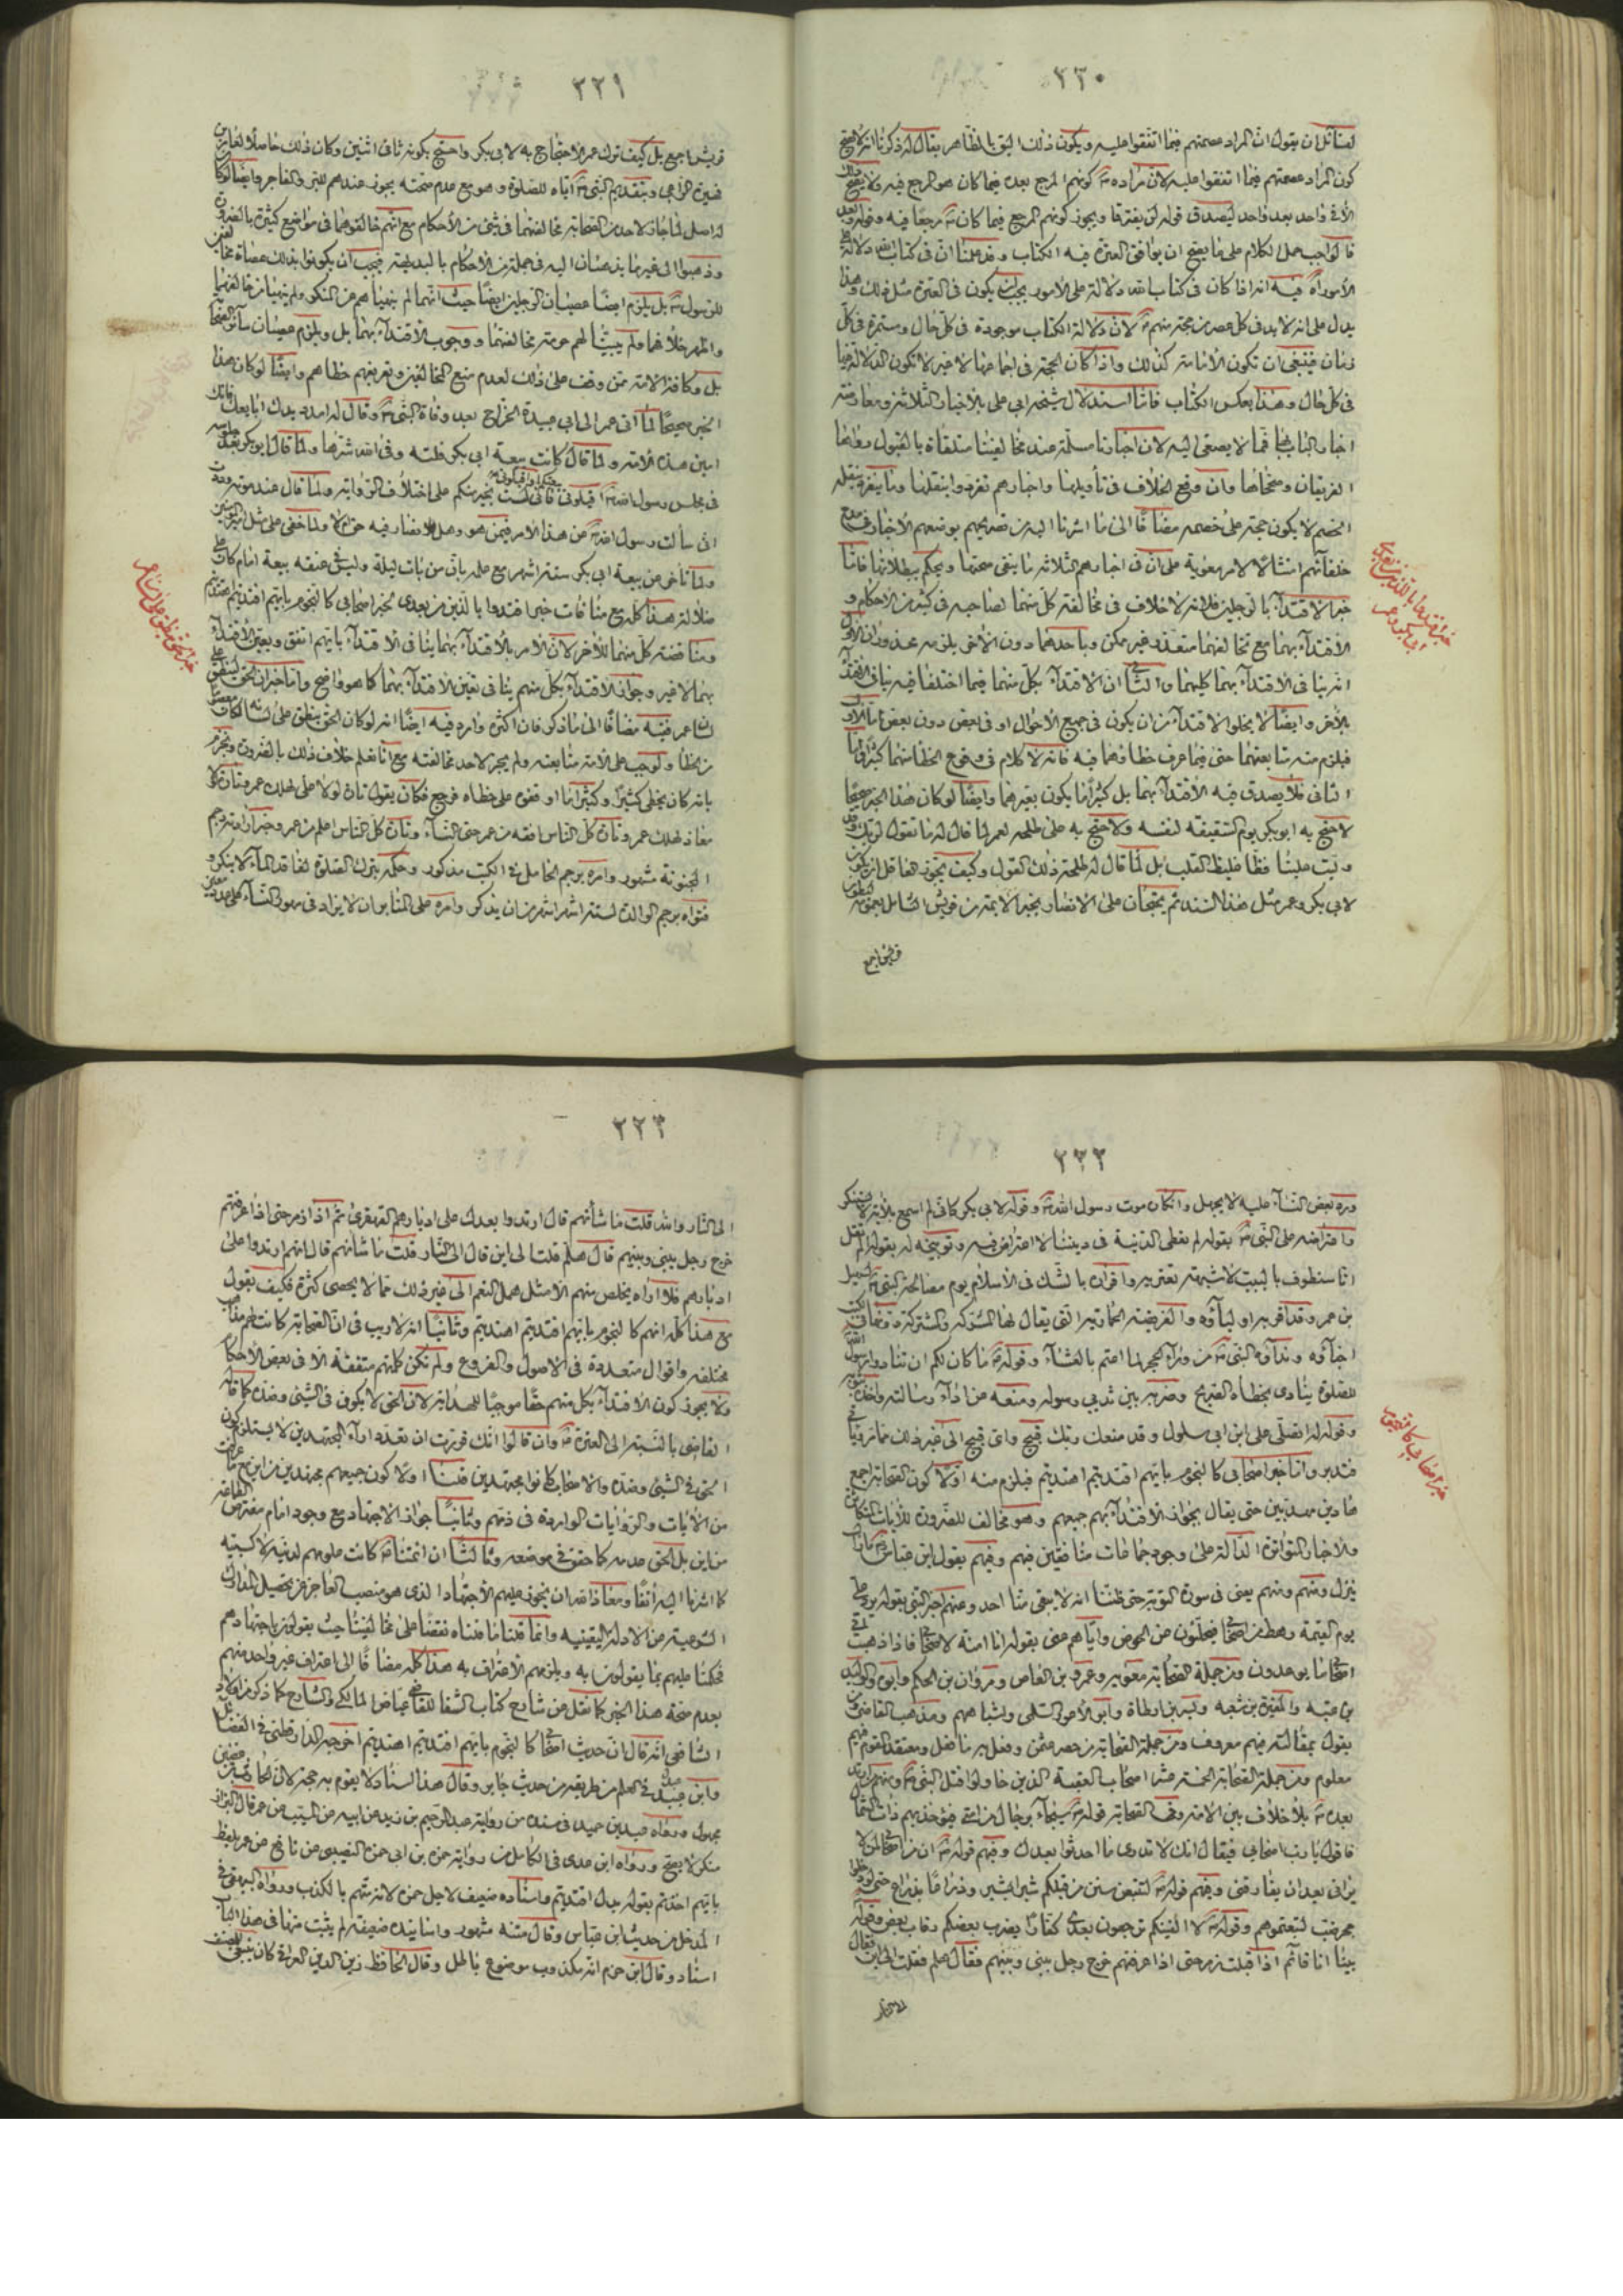 ٢٣٠
لقائل ان يقول ان المراد عصمتهم فيما اتفقوا عليه ويكون ذلك اليق بالظاهر يقال له ذكرنا انه لا يصح
كون المراد عصمتهم فيما اتفقوا عليه لان مراده كونهم المرجع بعده فيما كان هو المرجع فيه ولا يصح ذلك
الا في واحد بعد واحد ليصدق قوله لن يفترقا ويجوز كونهم المرجع فيما كان مرجعا فيه وقوله بعد
فالواجب حمل الكلام على ما يصح ان يوافق العترة فيه الكتاب وقد علمنا ان في كتاب الله دلالة على
الامور اه فيه انه اذا كان في كتاب الله دلالة على الامور يجب ان يكون في العترة مثل ذلك وهذا
يدل على انه لا بد في كل عصر من حجة منهم لان دلالة الكتاب موجودة في كل حال ومستمرة في كل
زمان فينبغي ان تكون الامامة كذلك واذا كان الحجة في اجماعها لا غير لا تكون الدلالة فيها
في كل حال وهذا بعكس الكتاب فاما استدلال شيخه ابي علي بالاخبار الثلاثة ومعارضته
اخبار الباب بها فمما لا يصغى اليه لان اخبارنا مسلمة عند مخالفينا متلقاة بالقبول رواها
الفريقان وصححاها وان وقع الخلاف في تأويلها واخبارهم تفردوا بنقلها وما يتفرد بنقله
الخصم لا يكون حجة على خصمه مضافا الى ما اشرنا اليه من تصريحهم بوضعهم الاخبار في مدح
خلفائهم امتثالا لامر معوية على ان في اخبارهم الثلاثة ما ينفي صحتها ويحكم ببطلانها فاما
خبر الاقتداء بالرجلين فلانه لا خلاف في مخالفة كل منهما لصاحبه في كثير من الاحكام و
الاقتداء بهما مع تخالفهما متعذر غير ممكن وباحدهما دون الاخر يلزم منه محذوران الاول
انه ينافي الاقتداء بهما كليهما والثاني ان الاقتداء بكل منهما فيما اختلفا فيه ينافي الاقتداء
بالاخر وايضا لا يخلو الاقتداء من ان يكون في جميع الاحوال او في بعض دون بعض فالاول
فيلزم منه متابعتهما حتى فيما عرف خطاؤهما فيه فانه لا كلام في وقوع الخطا منهما كثيرا واما
الثاني فلا يصدق فيه الاقتداء بهما بل كثيرا ما يكون بغيرهما وايضا لو كان هذا الخبر صحيحا
لاحتج به ابو بكر يوم السقيفة لنفسه ولاحتج به على طلحة لعمر لما قال له ما تقول لربك وقد
وليت علينا فظا غليظ القلب بل لما قال له طلحة ذلك القول وكيف يجوز لعاقل ان يكون
لابي بكر وعمر مثل هذا السند ثم يحتجان على الانصار بخبر الائمة من قريش الشامل بعمومه لبطون
قريش اجمع
خبر اقتدوا بالذين من بعدي
ابي بكر وعمر
٢٣١
قريش اجمع بل كيف ترك عمر الاحتجاج به لابي بكر واحتج بكونه ثاني اثنين وكان ذلك حاصلا لعامر بن
فهيرة الراعي وبتقديم النبي اياه للصلوة وهو مع عدم صحته يجوز عندهم للبر والفاجر وايضا لو كان
له اصل لما جاز لاحد من الصحابة مخالفتهما في شيء من الاحكام مع انهم خالفوهما في مواضع كثيرة بالضرورة
وذهبوا الى غير ما يذهبان اليه في جملة من الاحكام بالبديهة فيجب ان يكونوا بذلك عصاة مخالفين
للرسول بل يلزم ايضا عصيان الرجلين ايضا حيث انهما لم ينهياهم عن المنكر ولم ينهيا من خالفهما
واظهر خلافهما ولم يبينا لهم حرمة مخالفتهما ووجوب الاقتداء بهما بل ويلزم عصيان سائر الصحابة
بل وكافة الامة ممن وقف على ذلك لعدم منع المخالفين وتعريفهم خطاهم وايضا لو كان هذا
الخبر صحيحا لما اتى عمر الى ابي عبيدة الجراح بعد وفاة النبي وقال له امدد يدك ابايعك فانك
امين هذه الامة ولما قال كانت بيعة ابي بكر فلتة وقى الله شرها ولما قال ابو بكر بعد جلوسه
في مجلس رسول الله اقيلوني فاني لست بخيركم على اختلاف الرواية ولما قال عند موته وددت
اني سألت رسول الله عن هذا الامر فيمن هو وهل للانصار فيه حق ام لا ولما خفي على مثل امير المؤمنين
ولما تأخر عن بيعة ابي بكر ستة اشهر مع علمه بان من بات ليلة وليس في عنقه بيعة امام كان على
ضلالة هذا كله مع منافات خبر اقتدوا بالذين من بعدي لخبر اصحابي كالنجوم بايهم اقتديتم اهتديتم
ومناقضة كل منهما للاخر لان الامر بالاقتداء بهما ينافي الاقتداء بايهم اتفق ويعين الاقتداء
بهما لا غير وجواز الاقتداء بكل منهم ينافي تعين الاقتداء بهما كما هو واضح واما خبر ان الحق ينطق على
لسان عمر ففيه مضافا الى ما ذكر فان اكثره وارد فيه ايضا انه لو كان الحق ينطق على لسانه لكان معصوما
من الخطا ولوجب على الامة متابعته ولم يجز لاحد مخالفته مع انا نعلم خلاف ذلك بالضرورة ونجزم
بانه كان يخطي كثيرا وكثيرا ما اوقفوه على خطاه فرجع فكان يقول تارة لولا علي لهلك عمر وتارة لولا
معاذ لهلك عمر وتارة كل الناس افقه من عمر حتى النساء وتارة كل الناس اعلم من عمر وخبر امره برجم
المجنونة مشهور وامره برجم الحامل في الكتب مذكور وحكمه بترك الصلوة لفاقد الماء لا ينكر و
فتواه برجم الوالدة لستة اشهر اشهر من ان يذكر وامره على المنابر ان لا يزاد في مهور النساء على حد معين
خبر الحق ينطق على لسان عمر
٢٣٢
ورد بعض النساء عليه لا يجهل وانكاره موت رسول الله وقوله لابي بكر كأني لم اسمع بالاية لا ينكر
واعتراضه على النبي بقوله لم نعطي الدنية في ديننا لا اعتراض فيه وتوبيخه له بقوله الم تقل
انا سنطوف بالبيت لا شبهة تعتريه واقراره بالشك في الاسلام يوم مصالحة النبي لسهيل
بن عمر وقد اقر به اولياؤه والفريضة الحمارية التي يقال لها المشتركة والمشركة قضى في
اخباره ونداؤه النبي من وراء الحجر لما اعتم بالعشاء وقوله ما كان لكم ان تنادوا رسول الله
للصلوة ينادي بخطأه الصريح وضربه بين ثديي رسوله ومنعه من اداء رسالته واخذه بثوبه
وقوله له اتصلي على ابن ابي سلول وقد منعك ربك قبيح واي قبيح الى غير ذلك مما تريا في
فتدبر واما خبر اصحابي كالنجوم بايهم اقتديتم اهتديتم فيلزم منه اولا كون الصحابة اجمع
هادين مهديين حتى يقال بجواز الاقتداء بهم جميعهم وهو مخالف للضرورة للايات المتكاثرة
والاخبار المتواترة الدالة على وجود جماعات منافقين فيهم وفيهم يقول ابن عباس ما زال
ينزل ومنهم ومنهم يعني في سورة التوبة حتى ظننا انه لا يبقى منا احد وعنهم اخبر النبي بقوله يرد علي
يوم القيمة رهط من اصحابي فيحلئون عن الحوض واياهم عنى بقوله انا امنة لاصحابي فاذا ذهبت اتى
اصحابي ما يوعدون ومن جملة الصحابة معوية وعمرو بن العاص ومروان بن الحكم وابوه والوليد
بن عتبه والمغيرة بن شعبه وبسر بن ارطاة وابو الاعور السلمي واشباههم ومذهب القاضي
يقول بمقالته فيهم معروف ومن جملة الصحابة من حصر عثمن وفعل به ما فعل ومعتقد القوم فيهم
معلوم ومن جملة الصحابة الخمسة عشر اصحاب العقبة الذين حاولوا قتل النبي ومنهم المرتدون
بعده بلا خلاف بين الامة وفي الصحابة قوله سيجاء برجال من امتي فيؤخذ بهم ذات الشمال
فاقول يا رب اصحابي فيقال انك لا تدري ما احدثوا بعدك وفيهم قوله ان من اصحابي من لا
يراني بعد ان يفارقني وفيهم قوله لتتبعن سنن من قبلكم شبرا بشبر وذراعا بذراع حتى لو دخلوا
جحر ضب لتبعتموهم وقوله لا الفينكم ترجعون بعدي كفارا يضرب بعضكم رقاب بعض وقوله
بينا انا قائم اذا اقبلت زمرة حتى اذا عرفتهم خرج رجل بيني وبينهم فقال هلم فقلت الى اين فقال
الى النار
خبر اصحابي كالنجوم
٢٣٣
الى النار والله قلت ما شأنهم قال ارتدوا بعدك على ادبارهم القهقرى ثم اذا زمرة حتى اذا عرفتهم
خرج رجل بيني وبينهم قال هلم قلت الى اين قال الى النار قلت ما شأنهم قال انهم ارتدوا على
ادبارهم فلا اراه يخلص منهم الا مثل همل النعم الى غير ذلك مما لا يحصى كثرة فكيف يقول
مع هذا كله انهم كالنجوم بايهم اقتديتم اهتديتم وثانيا انه لا ريب في ان الصحابة كانت لهم مذاهب
مختلفة واقوال متعددة في الاصول والفروع ولم تكن كلمتهم متفقة الا في بعض الاحكام
ولا يجوز كون الاقتداء بكل منهم حقا موجبا للهداية لان الحق لا يكون في الشيء وضده كما قاله
القاضي بالنسبة الى العترة وان قالوا انك قررت ان تعدد اراء المجتهدين لا يستلزم كون
الحق في الشيء وضده والاصحاب كانوا مجتهدين قلنا اولا كون جميعهم مجتهدين من اين مع ما عرفت
من الايات والروايات الواردة في ذمهم وثانيا جواز الاجتهاد مع وجود امام مفترض الطاعة
من اين بل الحق عدمه كما حقق في موضعه وثالثا ان ائمتنا كانت علومهم لدنية لا كسبية
كما اشرنا اليه انفا ومعاذ الله ان يجوز عليهم الاجتهاد الذي هو منصب العاجز عن تحصيل المدارك
الشرعية من الادلة اليقينية وانما قلنا ما قلناه نقضا على مخالفينا حيث يقولون باجتهادهم
فحكمنا عليهم بما يقولون به ويلزمهم الاعتراف به هذا كله مضافا الى اعتراف غير واحد منهم
بعدم صحة هذا الخبر كما نقل عن شارح كتاب الشفا للقاضي عياض المالكي والشارح كما ذكر من اكابر
الشافعي انه قال ان حديث اصحابي كالنجوم بايهم اقتديتم اهتديتم اخرجه الدارقطني في الفضائل
وابن عبد البر في العلم من طريقه من حديث جابر وقال هذا اسناد لا يقوم به حجة لان الحارث بن غصين
مجهول ورواه عبد بن حميد في مسنده من رواية عبد الرحيم بن زيد عن ابيه عن المسيب عن عمر قال البزار
منكر لا يصح ورواه ابن عدي في الكامل من رواية حمزة بن ابي حمزة النصيبي عن نافع عن عمر بلفظ
بايهم اخذتم بقوله بدل اقتديتم واسناده ضعيف لاجل حمزة لانه متهم بالكذب ورواه البيهقي في
المدخل من حديث ابن عباس وقال متنه مشهور واسانيده ضعيفة لم يثبت منها في هذا الباب
اسناد وقال ابن حزم انه مكذوب موضوع باطل وقال الحافظ زين الدين العراقي كان ينبغي للمصنف